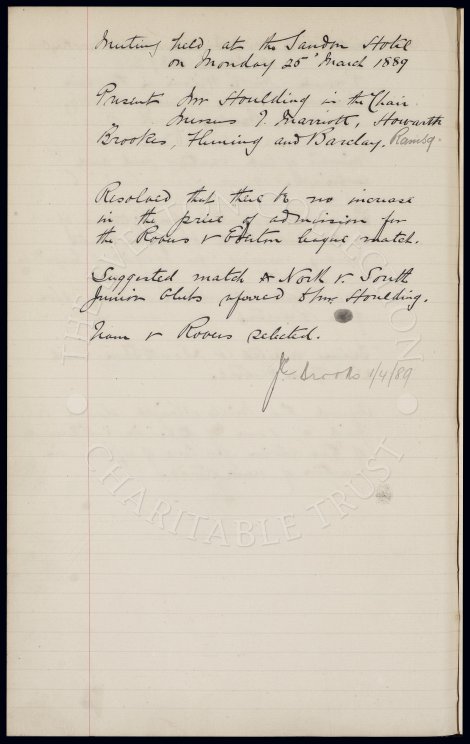 Meeting held at the Sandon Hotel
on Monday 25" March 1889
Present Mr Houlding in the Chair.
Messrs J. Marriott, Howarth
Brookes, Fleming and Barclay. Ramsay.
Resolved that there be no increase
in the price of admission for
the Rovers v Everton league match.
Suggested match North v. South
Junior Clubs referred to Mr Houlding.
Team v Rovers selected.
Brooks 1/4/89
THE EVERTON COLLECTION
CHARITABLE TRUST